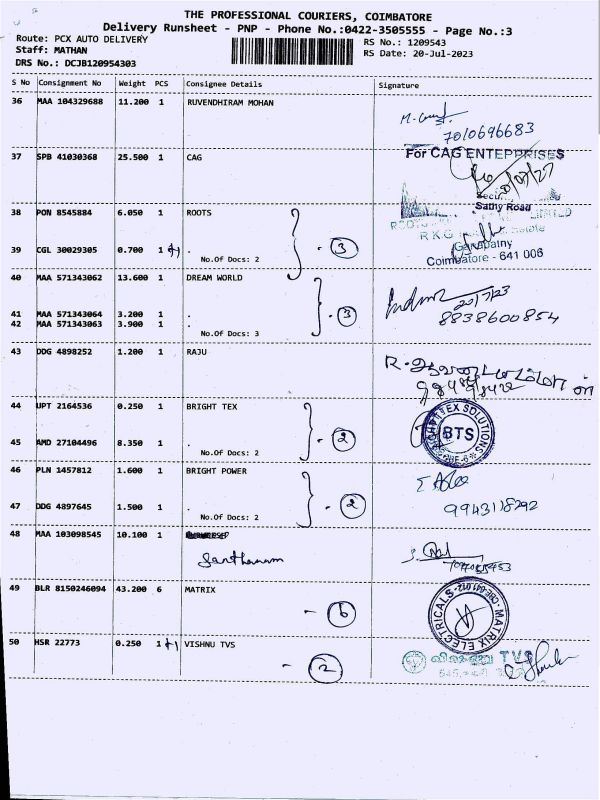 THE PROFESSIONAL COURIERS, COIMBATORE
Delivery Runsheet - PNP - Phone No.:0422-3505555 - Page No.:3
Route: PCX AUTO DELIVERY RS No.: 1209543
Staff: MATHAN RS Date: 20-Jul-2023
DRS No.: DCJB120954303
S No Consignment No Weight PCS Consignee Details Signature
36 MAA 104329688 11.200 1 RUVENDHIRAM MOHAN
7010696683
37 SPB 41030368 25.500 1 CAG For CAG ENTERPRISES
Sathy Road
38 PON 8545884 6.050 1 ROOTS
LIMITED
RKG
39 CGL 30029305 0.700 1 . - 3
Ganapathy
No.Of Docs: 2 Coimbatore - 641 006
40 MAA 571343062 13.600 1 DREAM WORLD
20/7/23
41 MAA 571343064 3.200 1 . - 3 8838600854
42 MAA 571343063 3.900 1 .
No.Of Docs: 3
43 DDG 4898252 1.200 1 RAJU
44 UPT 2164536 0.250 1 BRIGHT TEX
TEX SOLUTIONS
BTS
45 AMD 27104496 8.350 1 . - 2
No.Of Docs: 2
46 PLN 1457812 1.600 1 BRIGHT POWER
47 DDG 4897645 1.500 1 . - 2 9943118292
No.Of Docs: 2
48 MAA 103098545 10.100 1
Santhanam
49 BLR 8150246094 43.200 6 MATRIX
- 6 MATRIX ELECTRICALS
50 HSR 22773 0.250 1 +1 VISHNU TVS
- 2 TVS